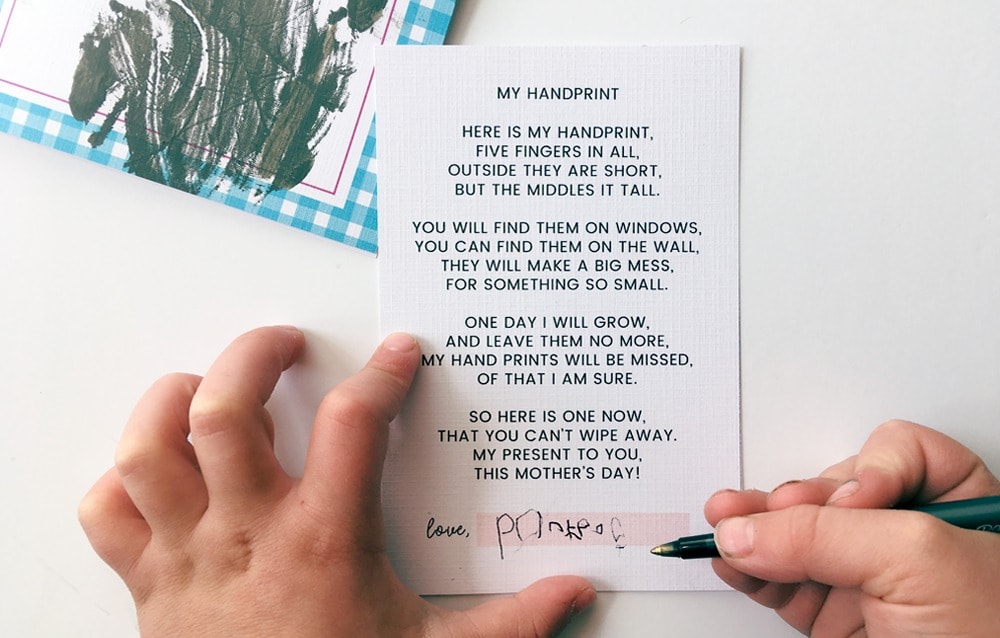 MY HANDPRINT
HERE IS MY HANDPRINT,
FIVE FINGERS IN ALL,
OUTSIDE THEY ARE SHORT,
BUT THE MIDDLES IT TALL.
YOU WILL FIND THEM ON WINDOWS,
YOU CAN FIND THEM ON THE WALL,
THEY WILL MAKE A BIG MESS,
FOR SOMETHING SO SMALL.
ONE DAY I WILL GROW,
AND LEAVE THEM NO MORE,
MY HAND PRINTS WILL BE MISSED,
OF THAT I AM SURE.
SO HERE IS ONE NOW,
THAT YOU CAN'T WIPE AWAY.
MY PRESENT TO YOU,
THIS MOTHER'S DAY!
love,